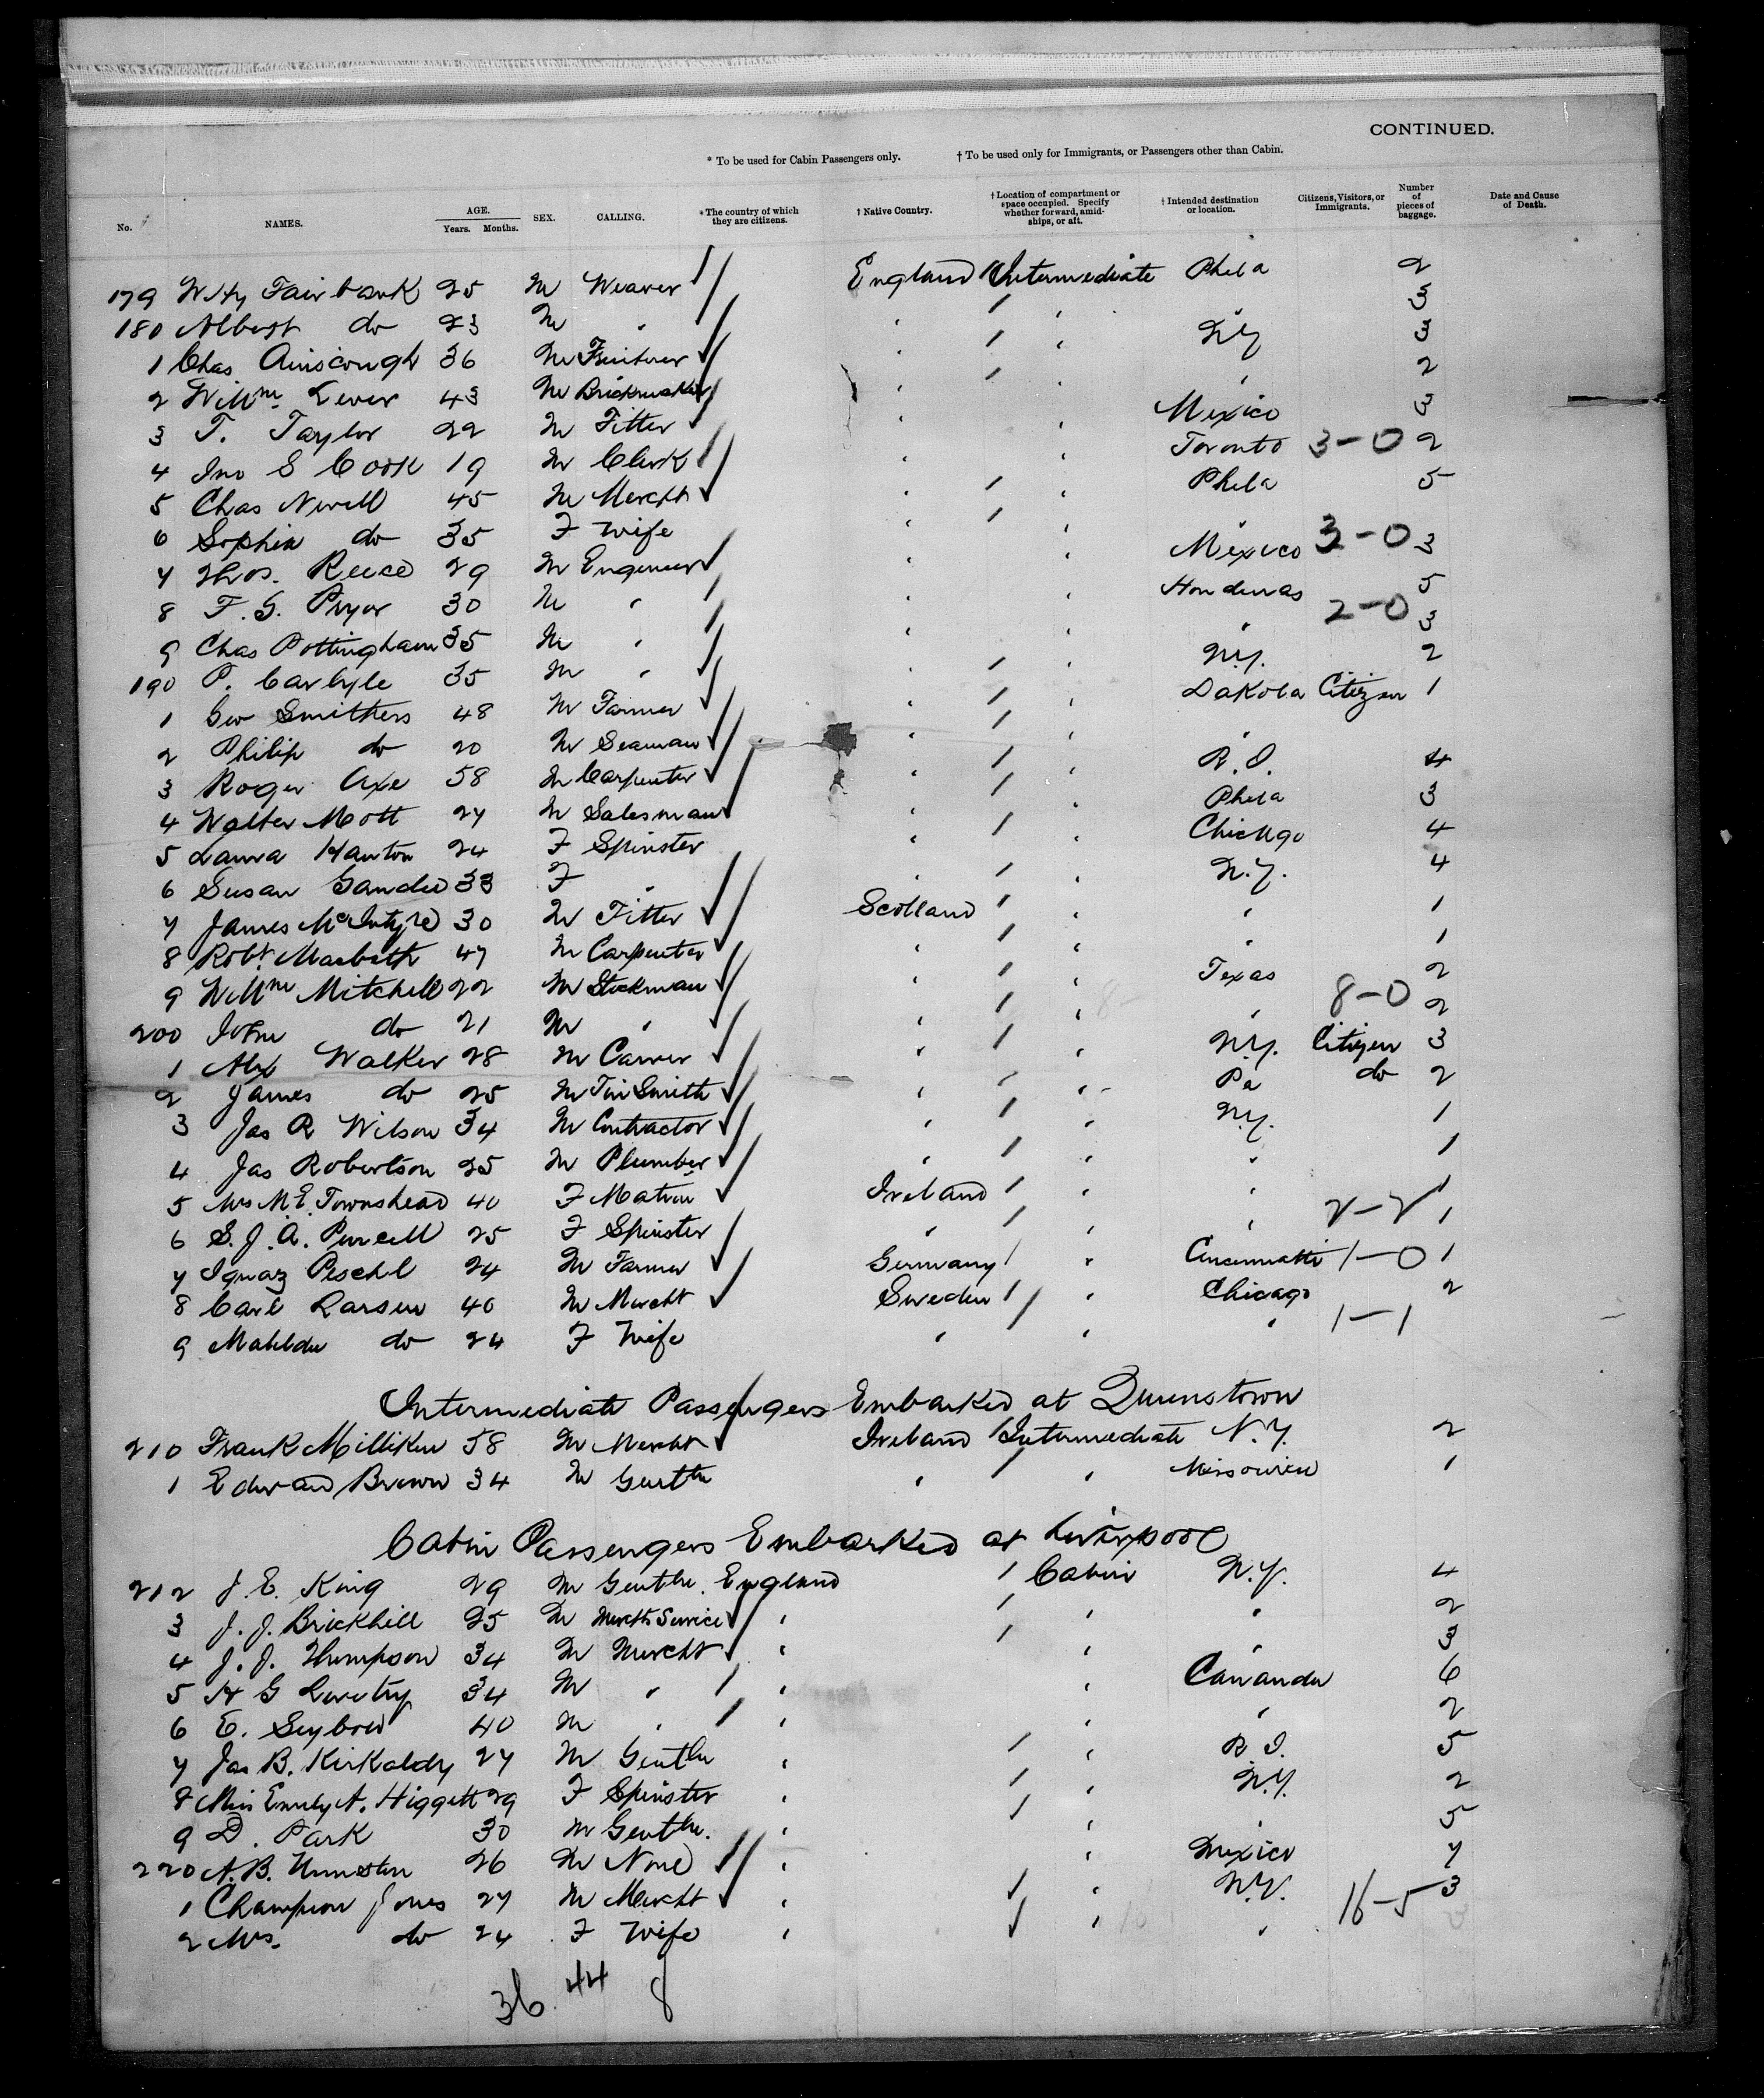 CONTINUED.
* To be used for Cabin Passengers only. † To be used only for Immigrants, or Passengers other than Cabin.
No. NAMES. AGE. Years. Months. SEX. CALLING. * The country of which they are citizens. † Native Country. † Location of compartment or space occupied. Specify whether forward, amidships, or aft. † Intended destination or location. Citizens, Visitors, or Immigrants. Number of pieces of baggage. Date and Cause of Death.
179 W Hy Fairbank 25 M Weaver England Intermediate Phila 2
180 Albert do 23 M " " " 3
1 Chas Ainscough 36 M Furniturer " " N Y 3
2 Willm Lever 43 M Brickmaker " " " 2
3 T. Taylor 22 M Fitter " " Mexico 3
4 Jno S Cook 19 M Clerk " " Toronto 3-0 2
5 Chas Newell 45 M Mercht " " Phila 5
6 Sophia do 35 F Wife " " "
7 Thos. Reece 29 M Engineer " " Mexico 3-0 3
8 F. G. Pryor 30 M " " " Honduras 5
9 Chas Pottingham 35 M " " " " 2-0 3
190 P. Carlyle 35 M " " " N.Y. 2
1 Geo Smithers 48 M Farmer " " Dakota Citizen 1
2 Philip do 20 M Seaman " " "
3 Roger Axe 58 M Carpenter " " R.I. 4
4 Walter Mott 27 M Salesman " " Phila 3
5 Laura Hanton 24 F Spinster " " Chicago 4
6 Susan Gander 33 F " " " N.Y. 4
7 James McIntyre 30 M Fitter Scotland " " 1
8 Robt. Macbeth 47 M Carpenter " " " 1
9 Willm Mitchell 22 M Stockman " " Texas 2
200 John do 21 M " " " " 8-0 2
1 Alex Walker 28 M Carver " " N.Y. Citizen 3
2 James do 25 M Tin Smith " " Pa do 2
3 Jas R Wilson 34 M Contractor " " N.Y. 1
4 Jas Robertson 25 M Plumber " " " 1
5 Mrs M. E. Townshead 40 F Matron Ireland " " 1
6 S. J. A. Purcell 25 F Spinster " " " 2-2 1
7 Ignaz Peschl 24 M Farmer Germany " Cincinnatti 1-0 1
8 Carl Larsen 40 M Mercht Sweden " Chicago 2
9 Matilda do 24 F Wife " " " 1-1
Intermediate Passengers Embarked at Queenstown
210 Frank Milliken 58 M Mercht Ireland Intermediate N.Y. 2
1 Edward Brown 34 M Gentln " " Missouri 1
Cabin Passengers Embarked at Liverpool
212 J. E. King 29 M Gentln. England Cabin N.Y. 4
3 J. J. Brickhill 25 M Mercht Service " " " 2
4 J. J. Thompson 34 M Mercht " " " 3
5 H G 34 M " " " Cananda 6
6 E. 40 M " " " " 2
7 Jas B. Kirkaldy 27 M Gentln " " R I. 5
8 Miss Emily A. Higgett 29 F Spinster " " N.Y. 2
9 D. Park 30 M Gentln. " " " 5
220 A. B. 26 M None " " Mexico 7
1 Champion Jones 27 M Mercht " " N.Y. 16-5 3
2 Mrs. do 24 F Wife " " "
36 44 8